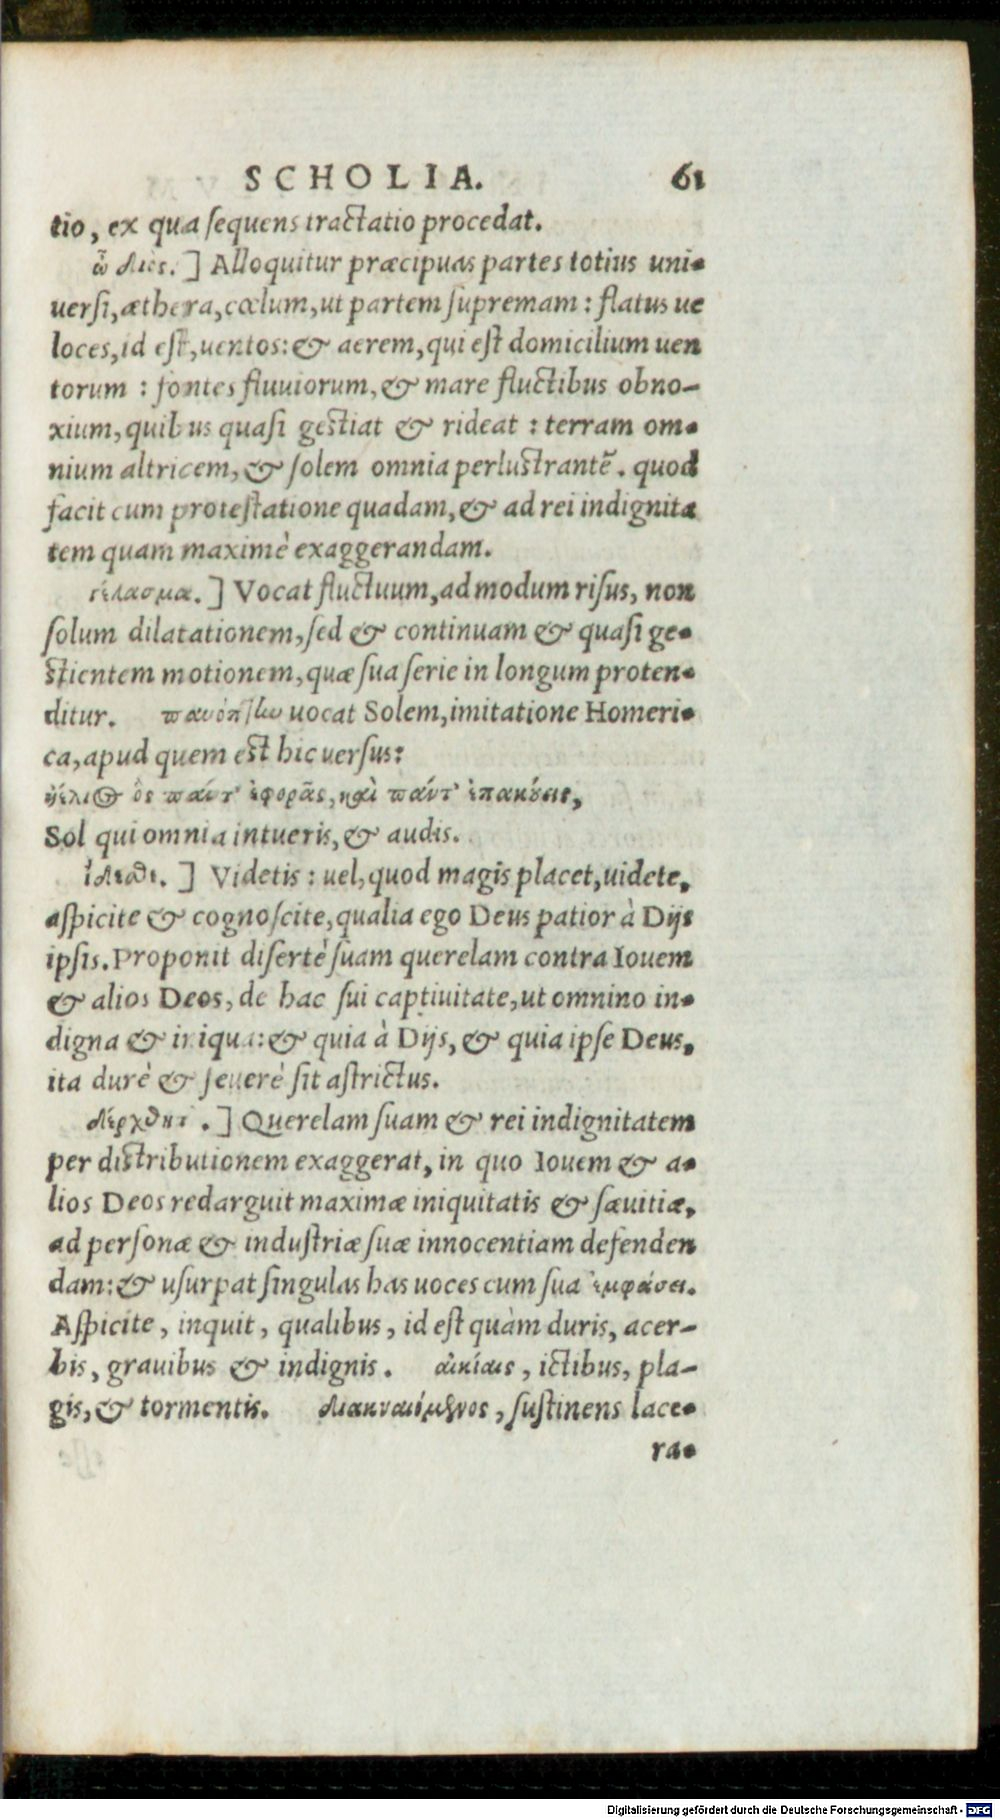 SCHOLIA. 61
tio, ex qua sequens tractatio procedat.
ὦ δῖος.] Alloquitur præcipuas partes totius uni-
uersi, æthera, cœlum, ut partem supremam: flatus ue
loces, id est, uentos: & aerem, qui est domicilium uen
torum: fontes fluuiorum, & mare fluctibus obno-
xium, quibus quasi gestiat & rideat: terram om-
nium altricem, & solem omnia perlustrantẽ. quod
facit cum protestatione quadam, & ad rei indignita
tem quam maximè exaggerandam.
γέλασμα.] Vocat fluctuum, ad modum risus, non
solum dilatationem, sed & continuam & quasi ge-
stientem motionem, quæ sua serie in longum proten-
ditur. πανόπτην uocat Solem, imitatione Homeri-
ca, apud quem est hic uersus:
ἠέλιος ὃς πάντ' ἐφορᾷς, καὶ πάντ' ἐπακούεις,
Sol qui omnia intueris, & audis.
ἴδεσθε.] Videtis: uel, quod magis placet, uidete,
aspicite & cognoscite, qualia ego Deus patior à Dijs
ipsis. Proponit disertè suam querelam contra Iouem
& alios Deos, de hac sui captiuitate, ut omnino in-
digna & iniqua: & quia à Dijs, & quia ipse Deus,
ita durè & seuerè sit astrictus.
δέρχθητ.] Querelam suam & rei indignitatem
per distributionem exaggerat, in quo Iouem & a-
lios Deos redarguit maximæ iniquitatis & sæuitiæ,
ad personæ & industriæ suæ innocentiam defenden
dam: & usurpat singulas has uoces cum sua ἐμφάσει.
Aspicite, inquit, qualibus, id est quàm duris, acer-
bis, grauibus & indignis. αἰκίαις, ictibus, pla-
gis, & tormentis. διακναιόμενος, sustinens lace-
ra-
Digitalisierung gefördert durch die Deutsche Forschungsgemeinschaft - DFG